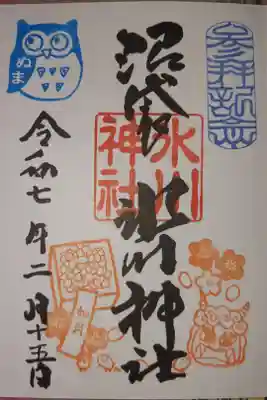 沼袋氷川神社
氷川
神社
ぬま
令和七年二月十五日